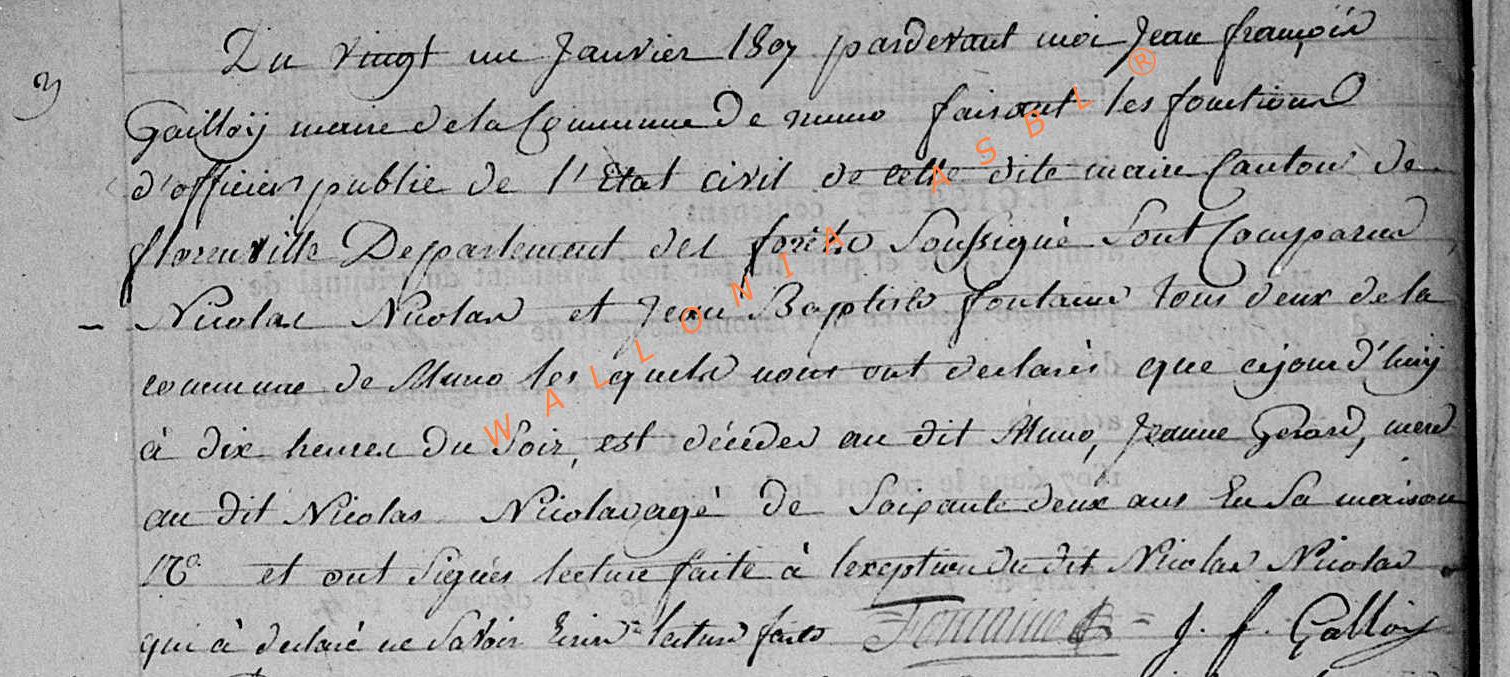 3
Du vingt un Janvier 1807 pardevant moi Jean françois
Gailloÿ maire de la Commune De muno faisant les fonctions
d'officier publie de l'Etat civil de cette dite mairie Canton de
florenville Departement des forêts Soussigné Sont Comparus
Nicolas Nicolas et Jean Baptiste fontaine tous deux de la
commune de Muno les quels nous ont declarés que cejourd'huÿ
à dix heures du Soir, est décédée au dit Muno, Jeanne Gerard, mere
au dit Nicolas Nicolas agé de Soixante deux ans En Sa maison
N° et ont Signés lecture faite à lexception du dit Nicolas Nicolas
qui à declaré ne Savoir Ecrire lecture faite Fontaine J. f. Galloiy
WALLONIA ASBL ®